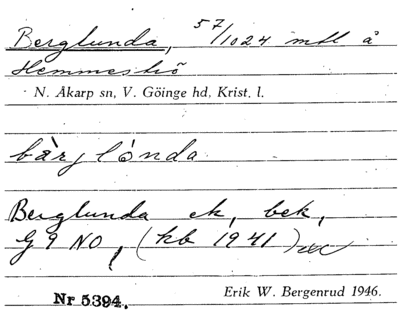 Berglunda, 57/1024 mtl å
Hemmeströ
N. Åkarp sn, V. Göinge hd, Krist. l.
bä̀rjlónda
Berglunda ek, bek,
G 9 NO, (kb 1941)
Nr 5394.
Erik W. Bergenrud 1946.